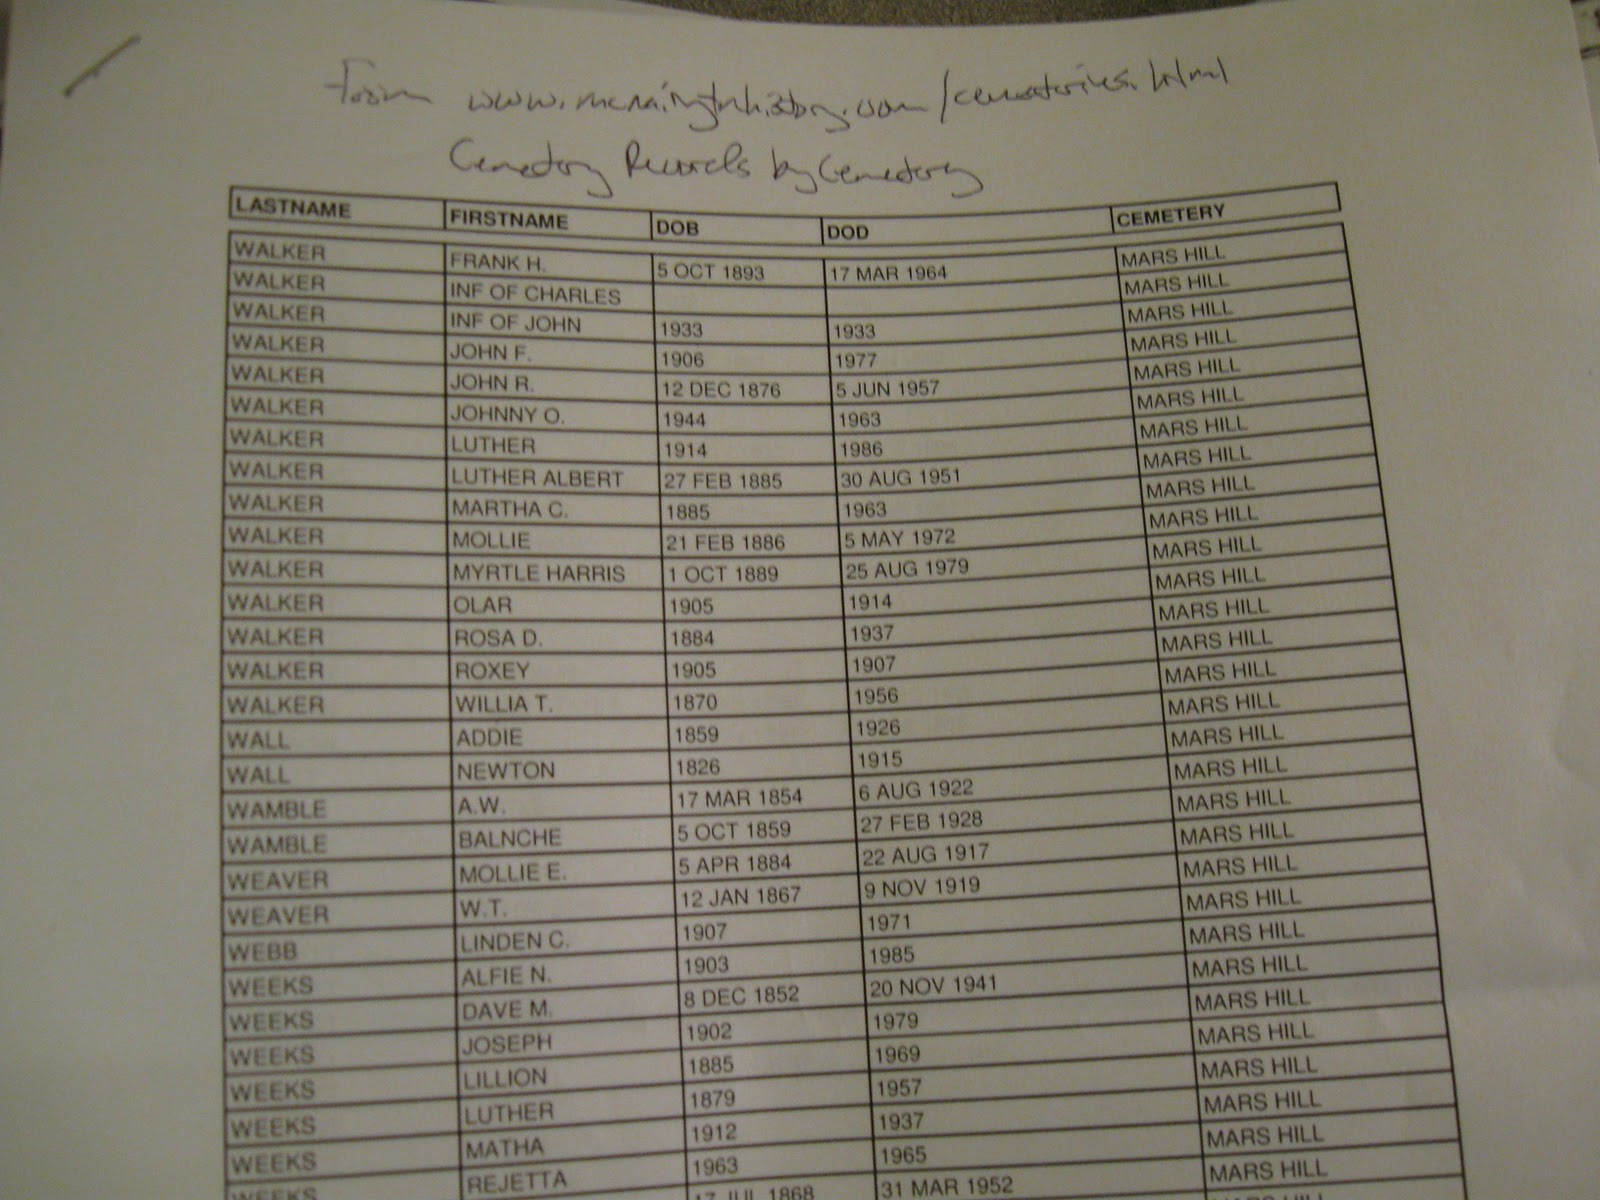 From www.mcnairytnhistory.com/cemetaries.html
Cemetery Records by Cemetery
LASTNAME FIRSTNAME DOB DOD CEMETERY
WALKER FRANK H. 5 OCT 1893 17 MAR 1964 MARS HILL
WALKER INF OF CHARLES MARS HILL
WALKER INF OF JOHN 1933 1933 MARS HILL
WALKER JOHN F. 1906 1977 MARS HILL
WALKER JOHN R. 12 DEC 1876 5 JUN 1957 MARS HILL
WALKER JOHNNY O. 1944 1963 MARS HILL
WALKER LUTHER 1914 1986 MARS HILL
WALKER LUTHER ALBERT 27 FEB 1885 30 AUG 1951 MARS HILL
WALKER MARTHA C. 1885 1963 MARS HILL
WALKER MOLLIE 21 FEB 1886 5 MAY 1972 MARS HILL
WALKER MYRTLE HARRIS 1 OCT 1889 25 AUG 1979 MARS HILL
WALKER OLAR 1905 1914 MARS HILL
WALKER ROSA D. 1884 1937 MARS HILL
WALKER ROXEY 1905 1907 MARS HILL
WALKER WILLIA T. 1870 1956 MARS HILL
WALL ADDIE 1859 1926 MARS HILL
WALL NEWTON 1826 1915 MARS HILL
WAMBLE A.W. 17 MAR 1854 6 AUG 1922 MARS HILL
WAMBLE BALNCHE 5 OCT 1859 27 FEB 1928 MARS HILL
WEAVER MOLLIE E. 5 APR 1884 22 AUG 1917 MARS HILL
WEAVER W.T. 12 JAN 1867 9 NOV 1919 MARS HILL
WEBB LINDEN C. 1907 1971 MARS HILL
WEEKS ALFIE N. 1903 1985 MARS HILL
WEEKS DAVE M. 8 DEC 1852 20 NOV 1941 MARS HILL
WEEKS JOSEPH 1902 1979 MARS HILL
WEEKS LILLION 1885 1969 MARS HILL
WEEKS LUTHER 1879 1957 MARS HILL
WEEKS MATHA 1912 1937 MARS HILL
WEEKS REJETTA 1963 1965 MARS HILL
17 JUL 1868 31 MAR 1952 MARS HILL